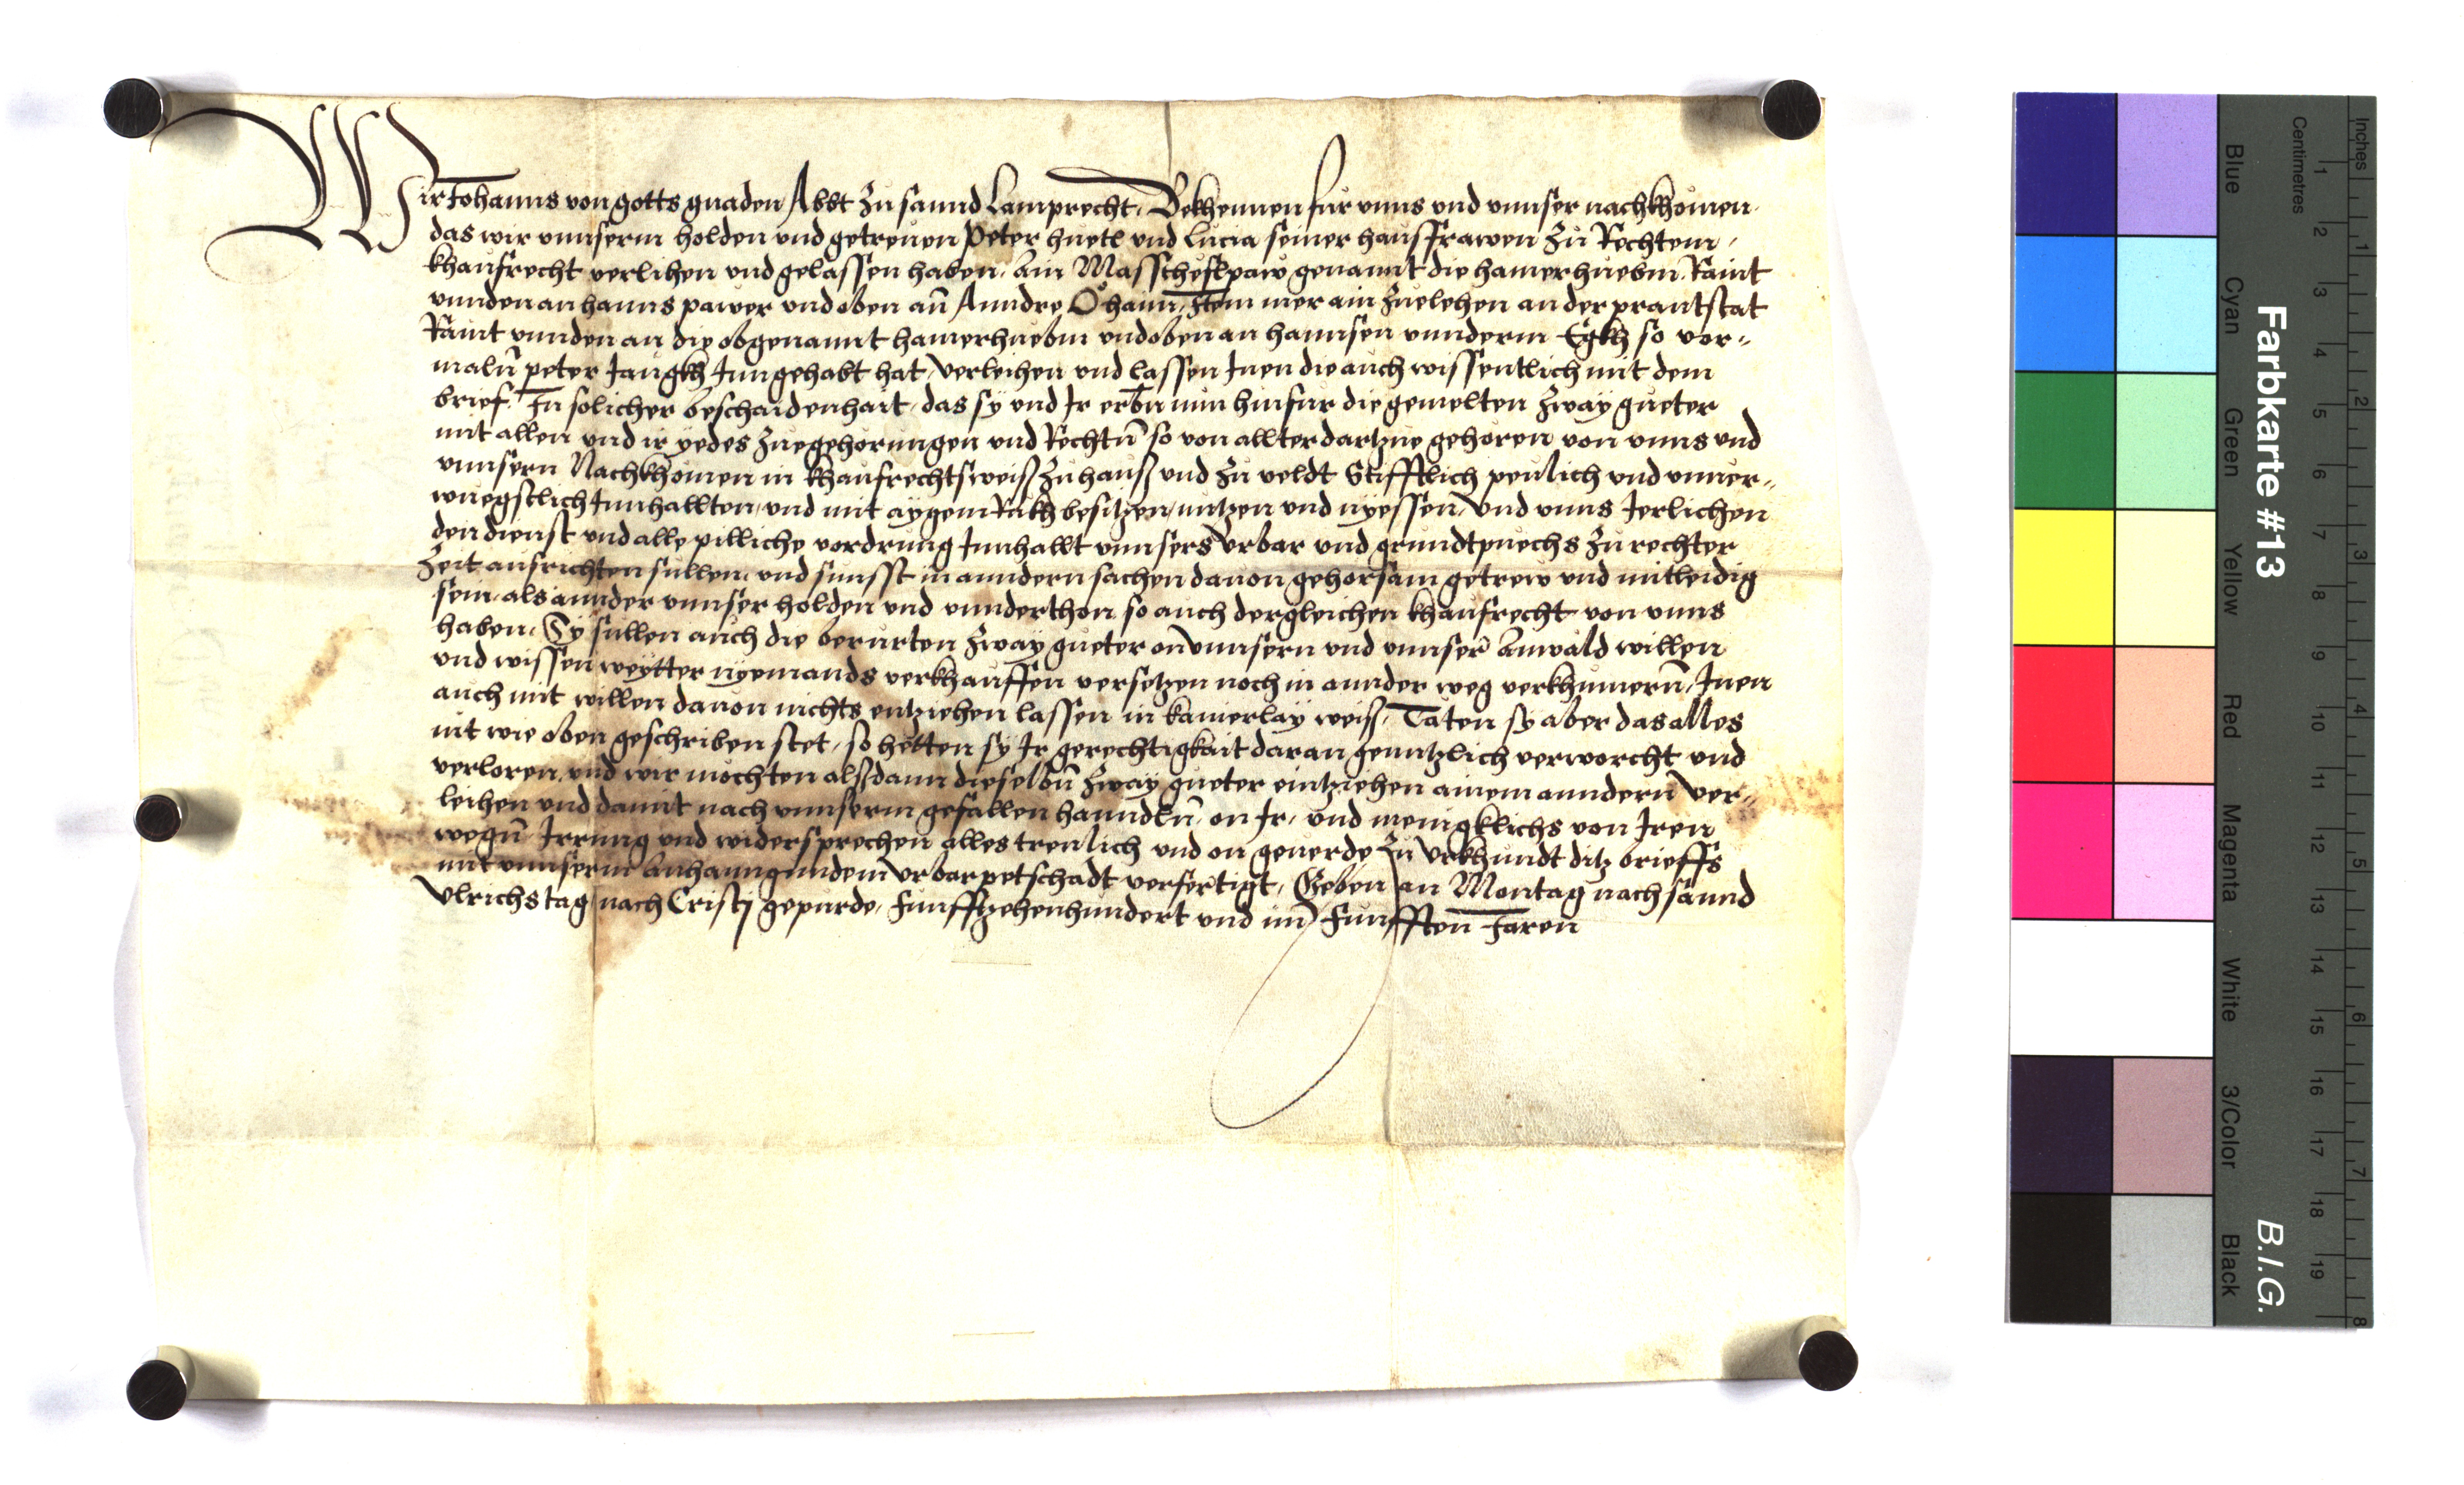 Wir Johanns von gotts gnaden Abbt zu sannd Lamprecht, Bekhennen fur unns und unnser nachkhomen
das wir unnserm holden und getreuen Peter huetl und Lucia seiner hausfrawen zu Rechtem
khaufrecht verlihen und gelassen haben, ain genannt die hamerhuebm, Raint
unnden an hanns pawer und oben an Anndre Item mer ain zuelehen an der prantstat
Raint unnden an die obgenannt hamerhuebm und oben an hannsen unnderm Egkh so vor-
maln peter Jangkh Inngehabt hat, verleihen und lassen Inen die auch wissentlich mit dem
brief, In solicher beschaidenhait, das sy und Ir erbn nun hinfur die gemelten zway gueter
mit allen und ir yedes zuegehorungen und Rechtn so von allter dartzue gehoren von unns und
unnsern Nachkhomen in khaufrechtsweiß zu hauß und zu veldt Stifftlich peulich und unver-
wuegstlich Innhallten, und mit aygem Rukh besitzen, nutzen und nyessen, und unns Jerlichen
den dienst und alle pilliche vordrung Innhallt unnsers Urbar und grundtpuechs zu rechter
Zeit ausrichten sullen, und sunsst in anndern sachen davon gehorsam getrew und mitleidig
sein, als annder unnser holden und unnderthon so auch dergleichen khaufrecht von unns
haben, Sy sullen auch die berurten zway gueter on unnsern und unnser Anwäld willen
und wissen weytter nyemands verkhauffen versetzen noch in annder weg verkhumern, Inen
auch mit willen davon nichts entziehen lassen in kainerlay weiß, Täten sy aber das alles
nit wie oben geschriben stet, so hetten sy Ir gerechtigkait daran genntzlich verworcht und
verloren, und wir mochten alßdann dieselbn zway gueter eintziehen ainem anndern ver-
leihen und damit nach unnserm gefallen hanndln, on Ir, und menigklichs von Iren
wegn Irrung und widersprechen alles treulich und on geuerde Zu Urkhundt ditz brieffs
mit unnserm Anhanngundem Urbarpetschadt verfertigt, Geben an Montag nach sannd
Ulrichstag nach Cristj gepurde, Funfftzehenhundert und im Funfften Jaren
Farbkarte #13
B.I.G.
Inches
Centimetres
1 2 3 4 5 6 7 8
1 2 3 4 5 6 7 8 9 10 11 12 13 14 15 16 17 18 19
Blue
Cyan
Green
Yellow
Red
Magenta
White
3/Color
Black